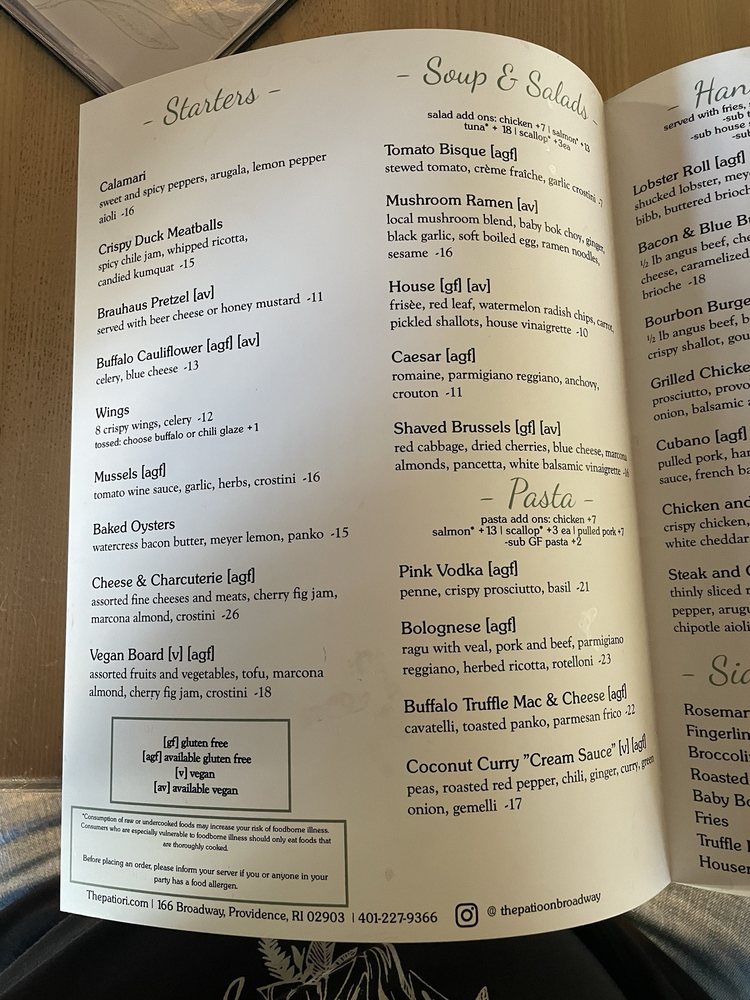 - Starters -
Calamari
sweet and spicy peppers, arugala, lemon pepper
aioli -16
Crispy Duck Meatballs
spicy chile jam, whipped ricotta,
candied kumquat -15
Brauhaus Pretzel [av]
served with beer cheese or honey mustard -11
Buffalo Cauliflower [agf] [av]
celery, blue cheese -13
Wings
8 crispy wings, celery -12
tossed: choose buffalo or chili glaze +1
Mussels [agf]
tomato wine sauce, garlic, herbs, crostini -16
Baked Oysters
watercress bacon butter, meyer lemon, panko -15
Cheese & Charcuterie [agf]
assorted fine cheeses and meats, cherry fig jam,
marcona almond, crostini -26
Vegan Board [v] [agf]
assorted fruits and vegetables, tofu, marcona
almond, cherry fig jam, crostini -18
[gf] gluten free
[agf] available gluten free
[v] vegan
[av] available vegan
*Consumption of raw or undercooked foods may increase your risk of foodborne illness.
Consumers who are especially vulnerable to foodborne illness should only eat foods that
are thoroughly cooked.
Before placing an order, please inform your server if you or anyone in your
party has a food allergen.
- Soup & Salads -
salad add ons: chicken +7 | salmon* +13
tuna* + 18 | scallop* +3ea
Tomato Bisque [agf]
stewed tomato, crème fraîche, garlic crostini -7
Mushroom Ramen [av]
local mushroom blend, baby bok choy, ginger,
black garlic, soft boiled egg, ramen noodles,
sesame -16
House [gf] [av]
frisèe, red leaf, watermelon radish chips, carrot,
pickled shallots, house vinaigrette -10
Caesar [agf]
romaine, parmigiano reggiano, anchovy,
crouton -11
Shaved Brussels [gf] [av]
red cabbage, dried cherries, blue cheese, marcona
almonds, pancetta, white balsamic vinaigrette -16
- Pasta -
pasta add ons: chicken +7
salmon* +13 | scallop* +3 ea | pulled pork +7
-sub GF pasta +2
Pink Vodka [agf]
penne, crispy prosciutto, basil -21
Bolognese [agf]
ragu with veal, pork and beef, parmigiano
reggiano, herbed ricotta, rotelloni -23
Buffalo Truffle Mac & Cheese [agf]
cavatelli, toasted panko, parmesan frico -22
Coconut Curry "Cream Sauce" [v] [agf]
peas, roasted red pepper, chili, ginger, curry, green
onion, gemelli -17
Thepatiori.com | 166 Broadway, Providence, RI 02903 | 401-227-9366 @ thepatioonbroadway
- Han
served with fries,
-sub
-sub house
-sub
Lobster Roll [agf]
shucked lobster, mey
bibb, buttered brioch
Bacon & Blue B
½ lb angus beef, che
cheese, caramelized
brioche -18
Bourbon Burge
½ lb angus beef, b
crispy shallot, gou
Grilled Chicke
prosciutto, provo
onion, balsamic
Cubano [agf]
pulled pork, ha
sauce, french ba
Chicken and
crispy chicken,
white cheddar
Steak and
thinly sliced
pepper, arug
chipotle aioli
- Si
Rosemar
Fingerlin
Broccoli
Roasted
Baby Bo
Fries
Truffle
House